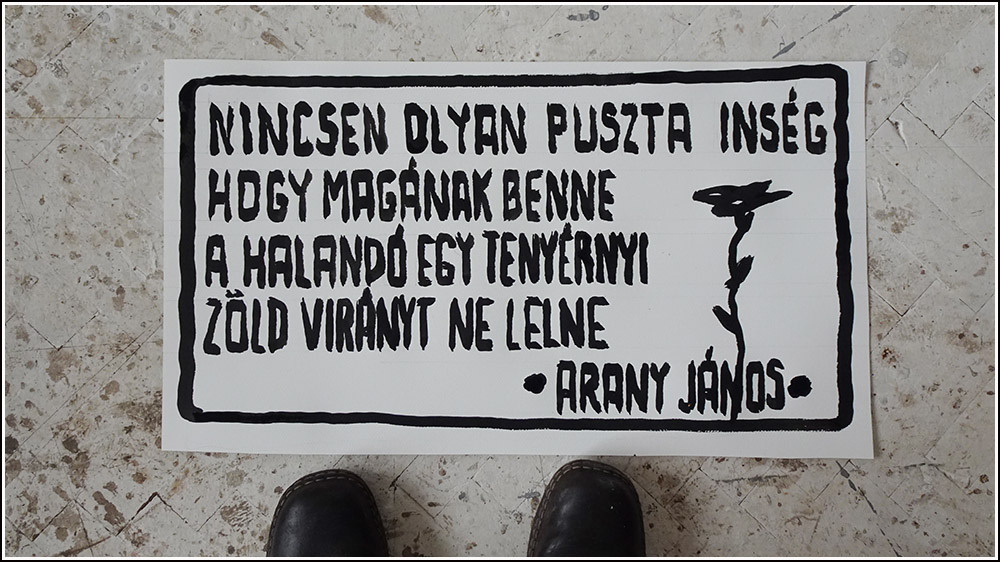 NINCSEN OLYAN PUSZTA INSÉG
HOGY MAGÁNAK BENNE
A HALANDÓ EGY TENYÉRNYI
ZÖLD VIRÁNYT NE LELNE
• ARANY JÁNOS •